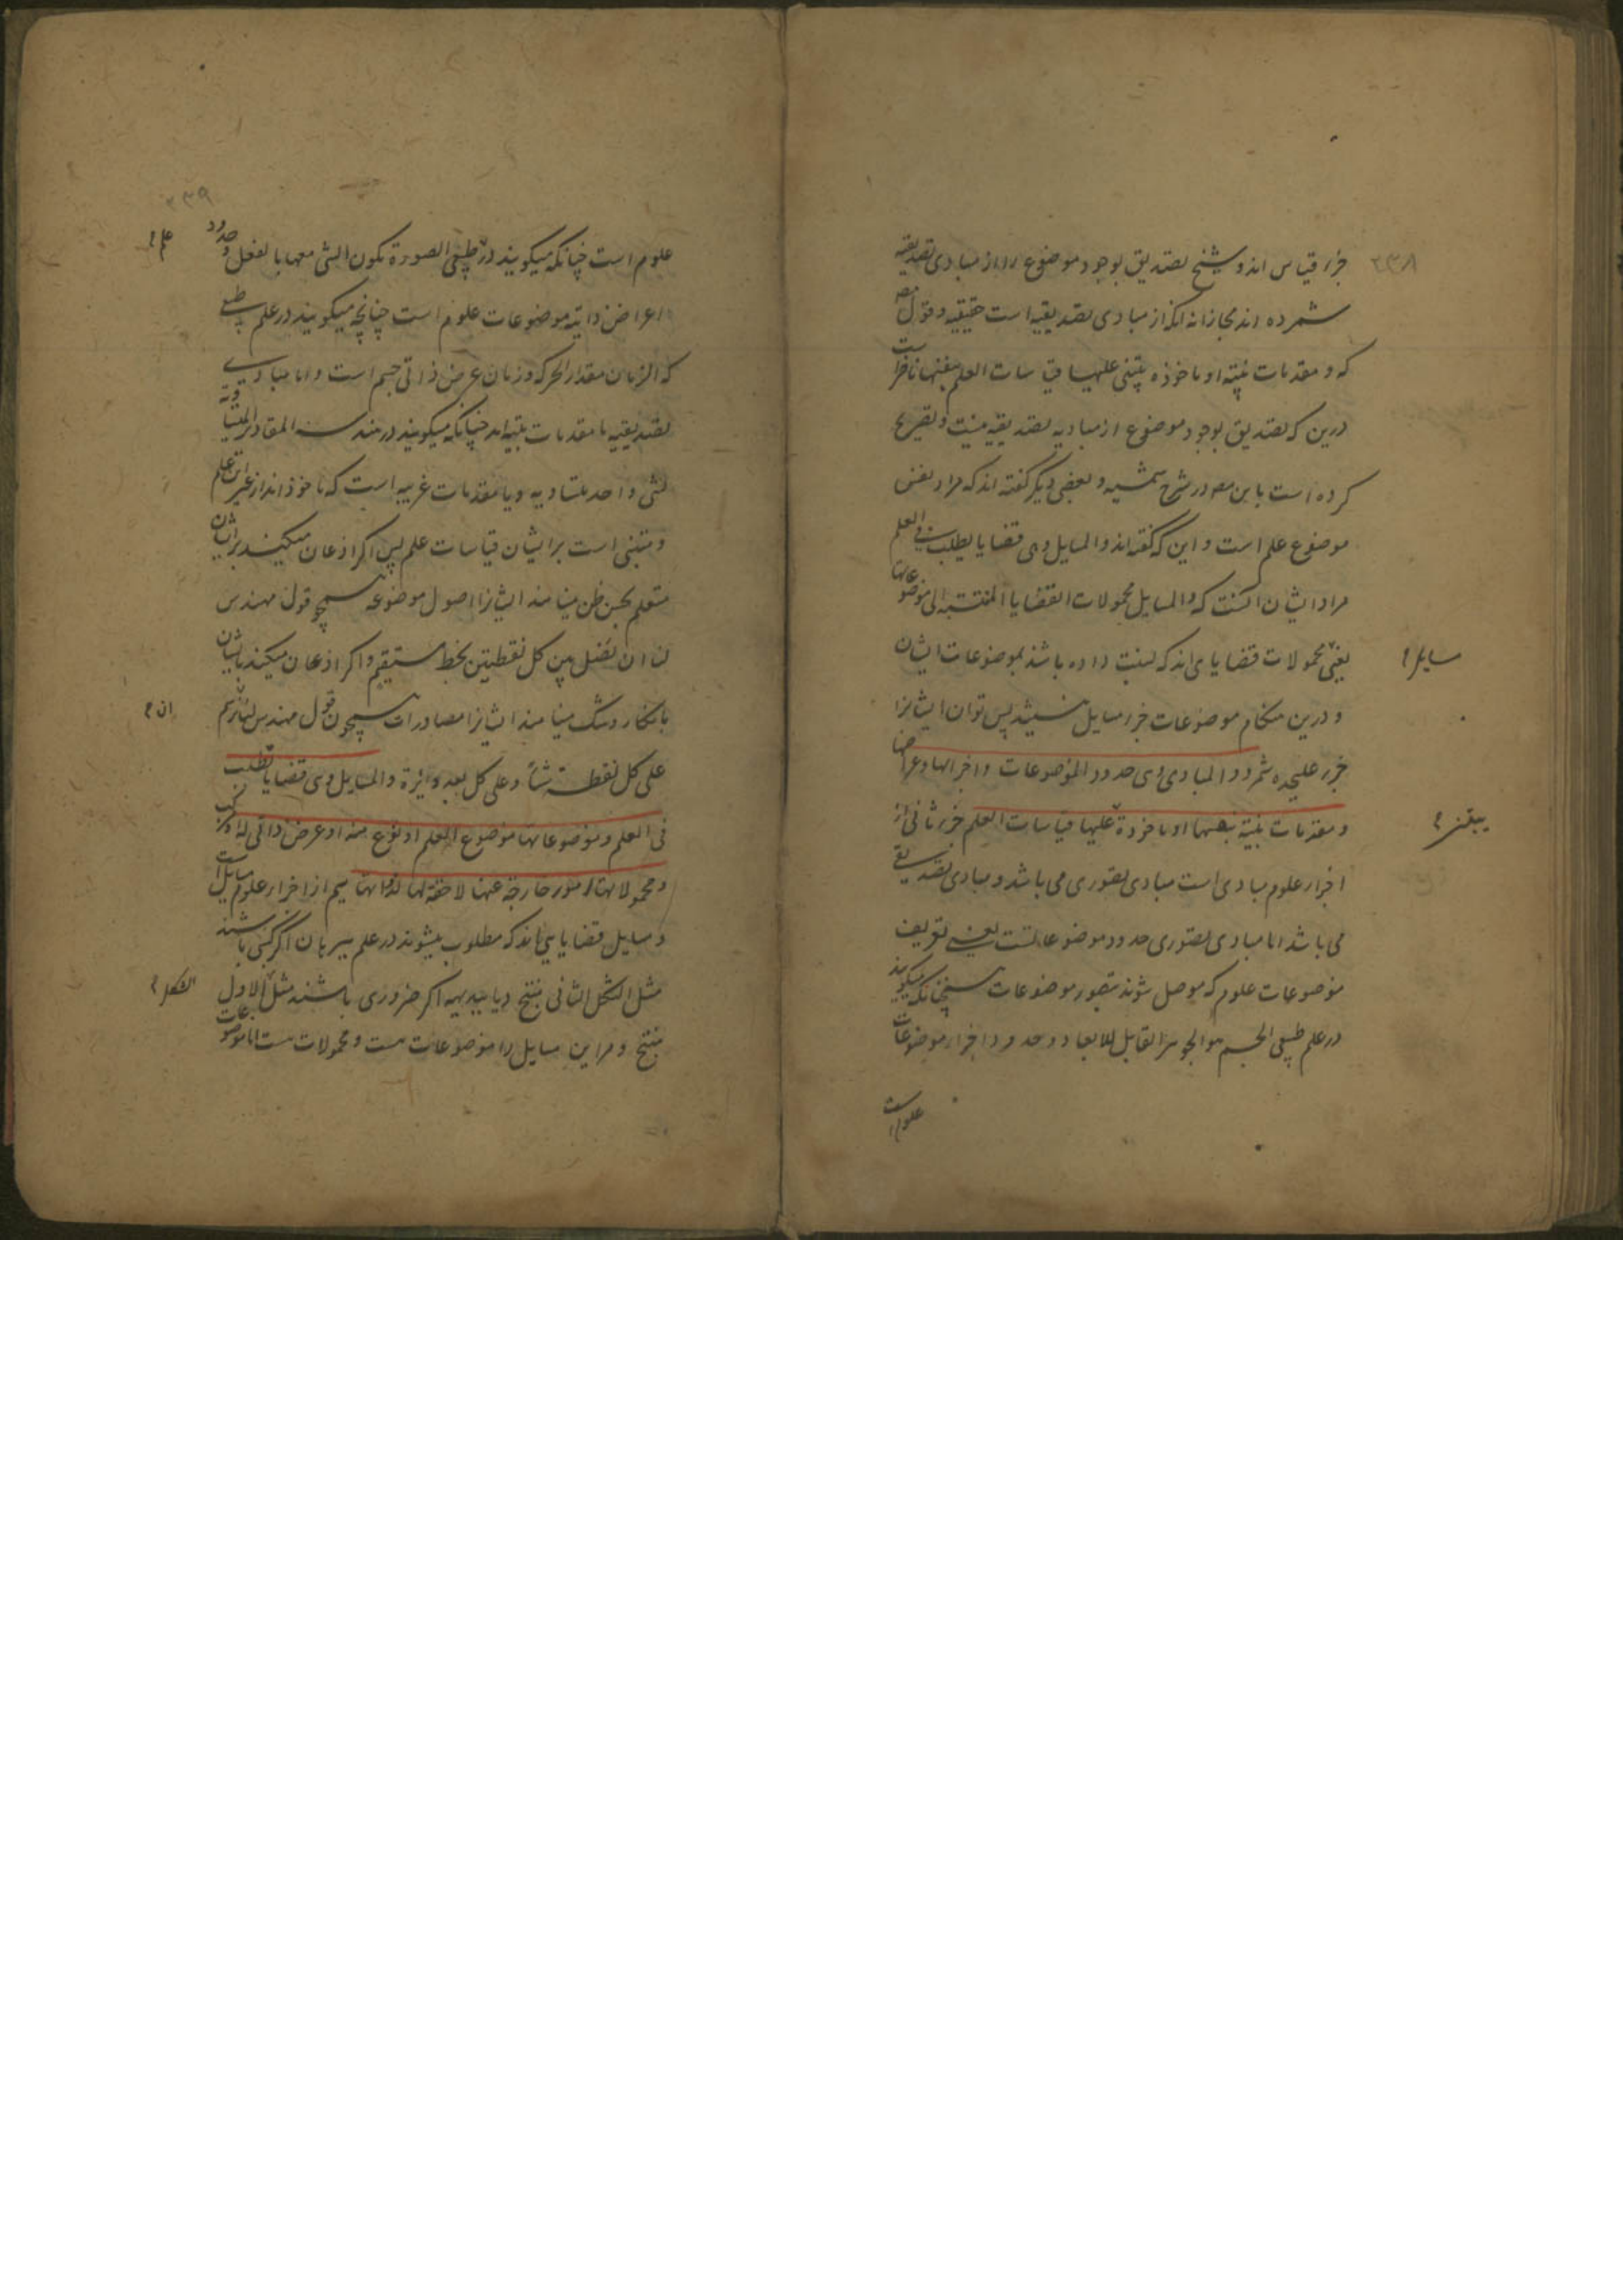 ۲۳۸
جزء قیاس اند و شیخ تصدیق بوجود موضوع را از مبادی تصدیقیه
شمرده اند مجازا نه انکه از مبادی تصدیقیه است حقیقیه و قول مص
که و مقدمات بینة او ماخوذه یبتنی علیها قیاسات العلم است
درین که تصدیق بوجود موضوع از مبادیه تصدیقیه نیست و تصریح
کرده است باین مص در شرح شمسیه و بعضی دیکر کفته اند که مراد نفس
موضوع علم است و این که کفته اند و المسایل وهی قضایا یطلب فی العلم
مراد ایشان انست که و المسایل محمولات القضایا المنتسبه الی موضوعاتها
یعنی محمولات قضایای اند که نسبت داده باشند بموضوعات ایشان
مسایل
و درین هنکام موضوعات جزء مسایل نیستند پس توان ایشانرا
جزء علیحده شمرد و المبادی وهی حدود الموضوعات و اجزائها و اعراضها
و مقدمات بینة او ماخوذة علیها قیاسات العلم جزء ثانی از
یبتنی
اجزاء علوم مبادی است مبادی تصوری می باشد و مبادی تصدیقی
می باشد اما مبادی تصوری حدود موضوعاتست یعنی تعریف
موضوعات علوم که موصل شوند بتصور موضوعات چنانکه میکویند
در علم طبیعی الجسم هو الجوهر القابل للابعاد و حدود اجزاء موضوعات
علوم است
۲۳۹
علوم است چنانکه میکویند در طبیعی الصورة تکون الشی معها بالفعل و حدود
علم
اعراض ذاتیه موضوعات علوم است چنانچه میکویند در علم طبیعی
که الزمان مقدار الحرکه و زمان عرض ذاتی جسم است و اما مبادی
تصدیقیه یا مقدمات بینه اند چنانکه میکویند در هندسه المقادیر المتساویة
لشی واحد متساویه و یا مقدمات غریبه است که ماخوذ اند از غیر این علم
و مبتنی است بر ایشان قیاسات علم پس اکر اذعان میکند بر ایشان
متعلم بحسن ظن مینامند ایشانرا اصول موضوعه همچو قول مهندس
لنا ان نصل بین کل نقطتین بخط مستقیم و اکر اذعان میکند بایشان
بانکار و شک مینامند ایشانرا مصادرات همچون قول مهندس لنا نرسم
ان
علی کل نقطة شئنا و علی کل بعد دایرة و المسایل وهی قضایا تطلب
فی العلم و موضوعاتها موضوع العلم او نوع منه او عرض ذاتی له او مرکب
و محمولاتها امور خارجة عنها لاحقة لها لذواتها سیم از اجزاء علوم مسایل است
و مسایل قضایایی اند که مطلوب میشوند در علم ببرهان اکر کسبی باشند
مثل الشکل الثانی منتج و یا ببدیهه اکر ضروری باشند مثل الاول
الشکل
منتج و مر این مسایل را موضوعات هست و محمولات هست اما موضوعات